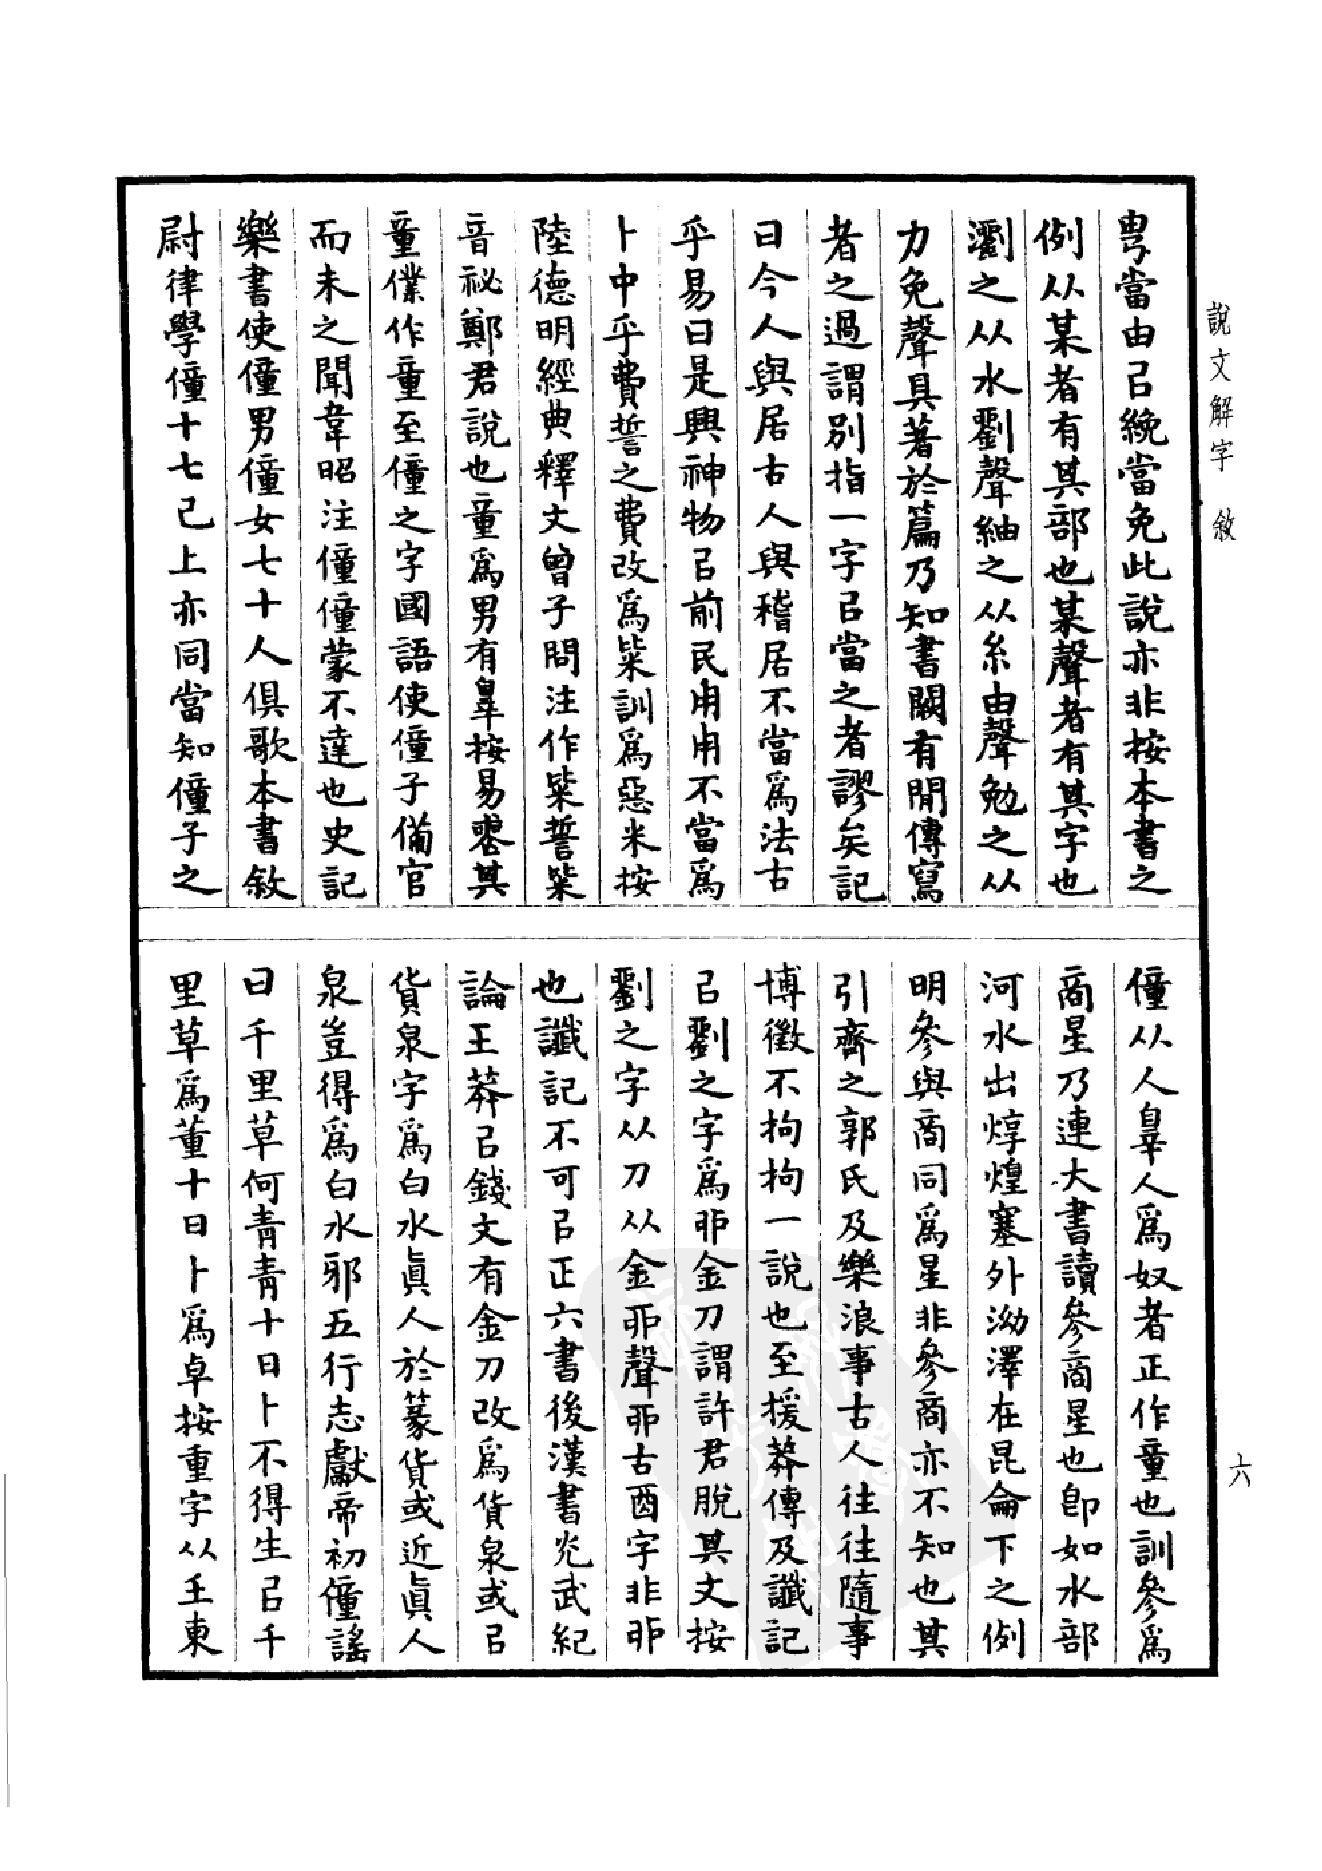 說文解字 敘
甹當由㠯絻當免此說亦非按本書之
例从某者有其部也某聲者有其字也
瀏之从水劉聲紬之从糸由聲勉之从
力免聲具著於篇乃知書闕有閒傳寫
者之過謂別指一字㠯當之者謬矣記
曰今人與居古人與稽居不當爲法古
乎易曰是興神物㠯前民用用不當爲
卜中乎費誓之費改爲粊訓爲惡米按
陸德明經典釋文曾子問注作粊誓粊
音祕鄭君說也童爲男有辠按易喪其
童僕作童至僮之字國語使僮子備官
而未之聞韋昭注僮僮蒙不達也史記
樂書使僮男僮女七十人俱歌本書敘
尉律學僮十七已上亦同當知僮子之
僮从人辠人爲奴者正作童也訓參爲
商星乃連大書讀參商星也卽如水部
河水出焞煌塞外泑澤在昆侖下之例
明參與商同爲星非參商亦不知也其
引齊之郭氏及樂浪事古人往往隨事
博徵不拘拘一說也至援莽傳及讖記
㠯劉之字爲丣金刀謂許君脫其文按
劉之字从刀从金丣聲丣古酉字非丣
也讖記不可㠯正六書後漢書光武紀
論王莽㠯錢文有金刀改爲貨泉或㠯
貨泉字爲白水眞人於篆貨或近眞人
泉豈得爲白水邪五行志獻帝初僮謠
曰千里草何青青十日卜不得生㠯千
里草爲董十日卜爲卓按重字从壬東
六